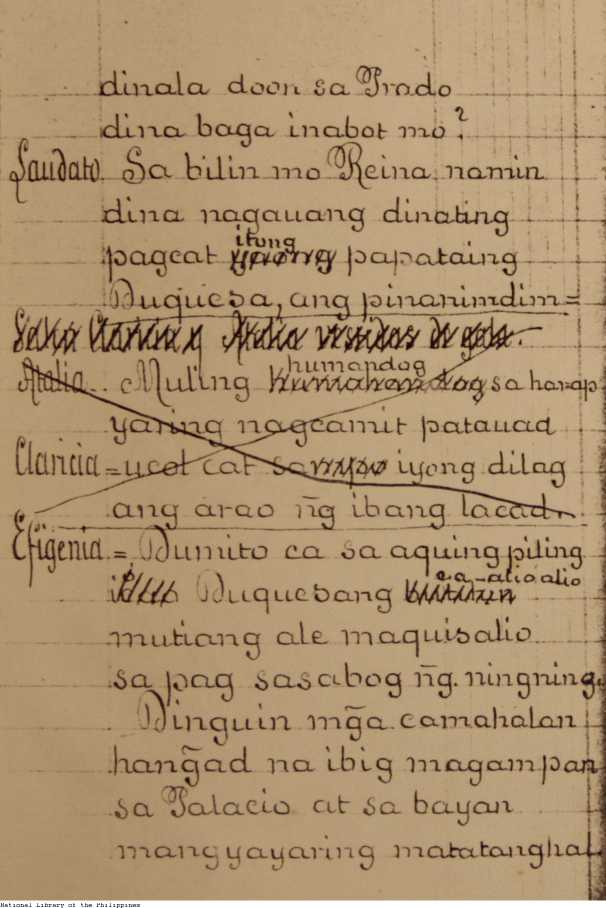 dinala doon sa Prado
dina baga inabot mo?
Laudato. Sa bilin mo Reina, namin
dina nagauang dinating
itong
pagcat papataing
Duquesa, ang pinanimdim=
Salen Claricia y Atalia vestidas de gala.
humandog
Atalia.. Muling sa harap
yaring nagcamit patauad
Claricia = ucol cat sa iyong dilag
ang arao ñg ibang lacad.
Efigenia = Dumito ca sa aquing piling
ca-alio alio
Duquesang
mutiang ale maquisalio
sa pag sasabog ñg. ningning.
Dinguin mg̃a camahalan
hang̃ad na ibig magampan
sa Palacio at sa bayan
mangyayaring matatanghal